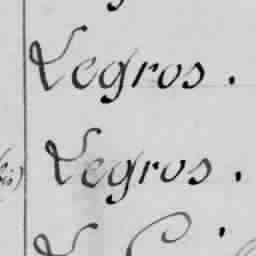 Legros.
Legros.